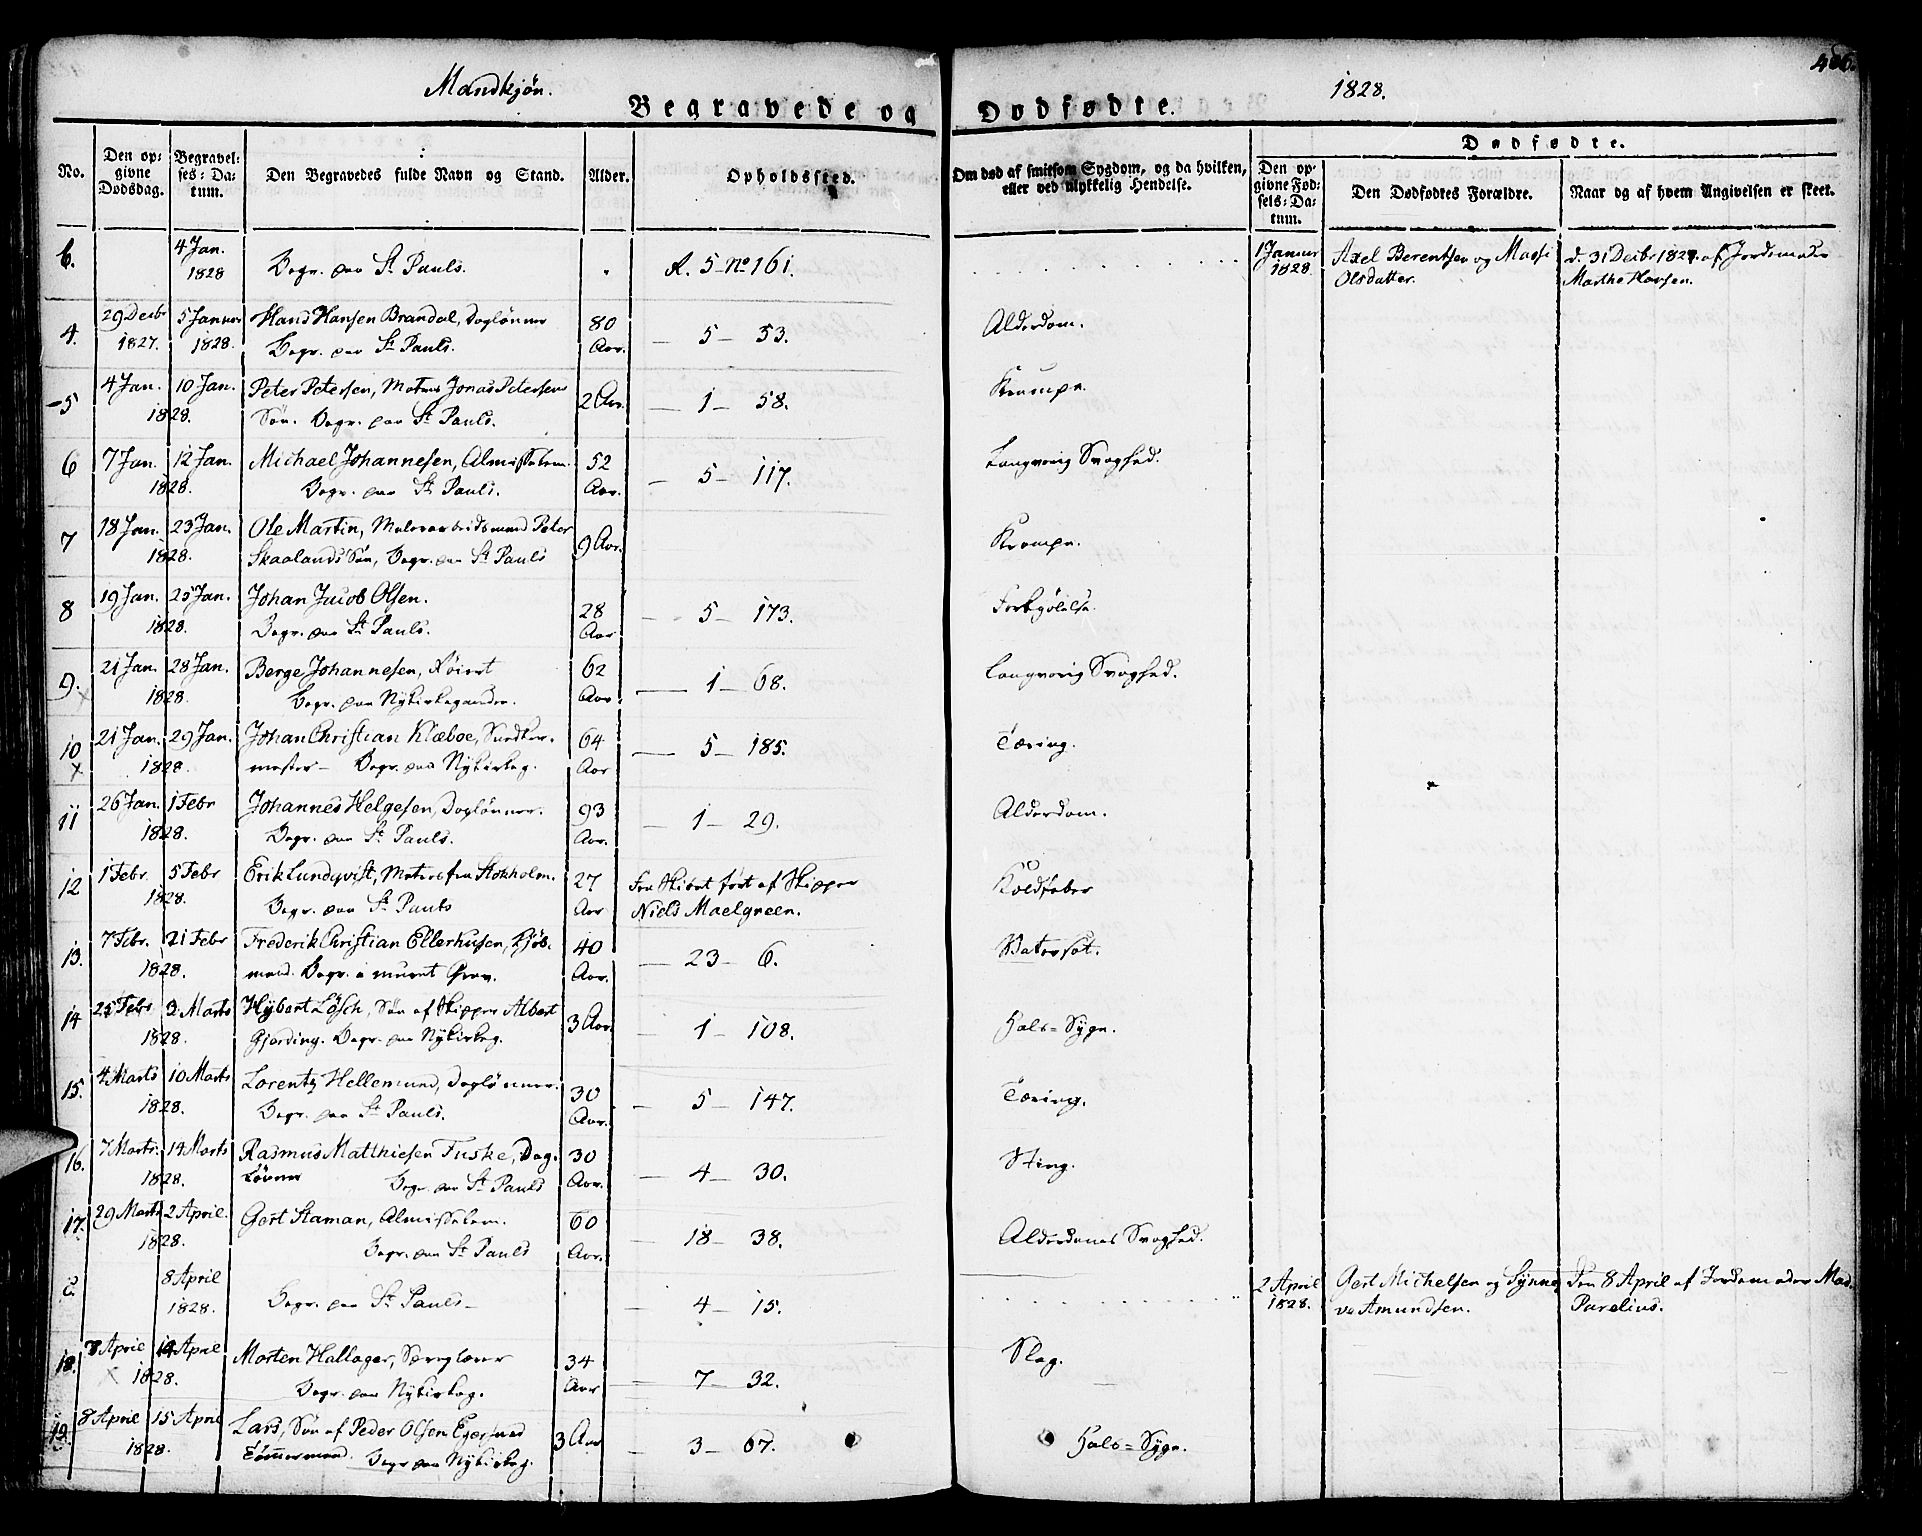 Mandkjøn.
Begravede og Dødfødte.
1828.
No.
Den op-
givne
Dødsdag.
Begravel-
ses-Da-
tum.
Den Begravedes fulde Navn og Stand.
Alder.
Opholdssted.
Om død af smitsom Sygdom, og da hvilken,
eller ved ulykkelig Hendelse.
Dødfødte.
Den op-
givne Fød-
sels-Da-
tum.
Den Dødfødtes Forældre.
Naar og af hvem Angivelsen er skeet.
b. 4 Jan. 1828 Begr. paa St Pauls. R. 5 No 161. 1 Januar 1828. Axel Berentsen og Massi d. 31 Decbr 1827. af Jordemoder
Olsdatter. Marthe Larsen.
4. 29 Decbr 5 Januar Hans Hansen Brandal, Daglønner 80 — 5 — 53. Alderdom.
1827. 1828. Begr. paa St Pauls. Aar.
5 4 Jan. 10 Jan. Peter Petersen, Matros Jonas Petersens 2 Aar. — 1 — 58. Krampe.
1828. Søn. Begr. paa St Pauls.
6 7 Jan. 12 Jan. Michael Johannesen, Almisselem. 52 — 5 — 117. Langvarig Svaghed.
1828. Begr. paa St Pauls. Aar.
7 18 Jan. 23 Jan. Ole Martin, Malerarbeidsmand Peter 9 Aar. Krampe.
1828. Skaalands Søn, Begr. paa St Pauls
8 19 Jan. 25 Jan. Johan Jacob Olsen. 28 — 5 — 173. Forkjølelse.
1828. Begr. paa St Pauls. Aar
9. 21 Jan. 28 Jan. Berge Johannesen, 62 — 1 — 68. Langvarig Svaghed.
1828. Begr. paa Nykirkegaarden. Aar
10 21 Jan. 29 Jan. Johan Christian Klæboe, Snedker- 64 — 5 — 185. Tæring.
x 1828. mester — Begr. paa Nykirkeg. Aar
11 26 Jan. 1 Febr Johannes Helgesen, Daglønner. 93 — 1 — 29. Alderdom.
1828. Begr. paa St Pauls. Aar.
12 1 Febr. 5 Febr Erik Lundqvist, Matros fra Stokholm. 27 Fra Skibet ført af Skipper Koldfeber
1828. Begr. paa St Pauls Aar Niels Maelgreen.
13. 7 Febr. 21 Febr Frederik Christian Ellerhusen, Kjøb- 40 — 23 — 6. Vatersot.
1828. mand. Begr. i muret Grav. Aar.
14 25 Febr 3 Marts Hybert Lösch, Søn af Skipper Albert 3 Aar. — 1 — 108. Hals-Syge.
1828. Gjerding. Begr. paa Nykirkeg.
15. 4 Marts 10 Marts Lorentz Hellemund, Daglønner. 30 — 5 — 147. Tæring.
1828. Begr. paa St Pauls. Aar.
16. 7 Marts. 14 Marts Rasmus Matthiesen Fuske, Dag- 30 — 4 — 30. Sting.
1828. lønner Begr. paa St Pauls Aar.
17. 29 Marts 2 April. Gert Staman, Almisselem. 60 — 18 — 38. Alderdoms Svaghed.
1828. Begr. paa St Pauls Aar.
c. 8 April Begr. paa St Pauls — — 4 — 15. 2 April Gert Michelsen og Synne- Den 8 April af Jordemoder Mad.
1828. 1828. ve Amundsen. Parelius.
18. 8 April 14 April Morten Hallager, 34 — 7 — 32. Slag.
x 1828. Begr. paa Nykirkeg. Aar
19. 8 April 15 April Lars, Søn af Peder Olsen Egersund 3 Aar — 3 — 67. Hals-Syge.
1828. Tømmermand. Begr paa Nykirkeg.